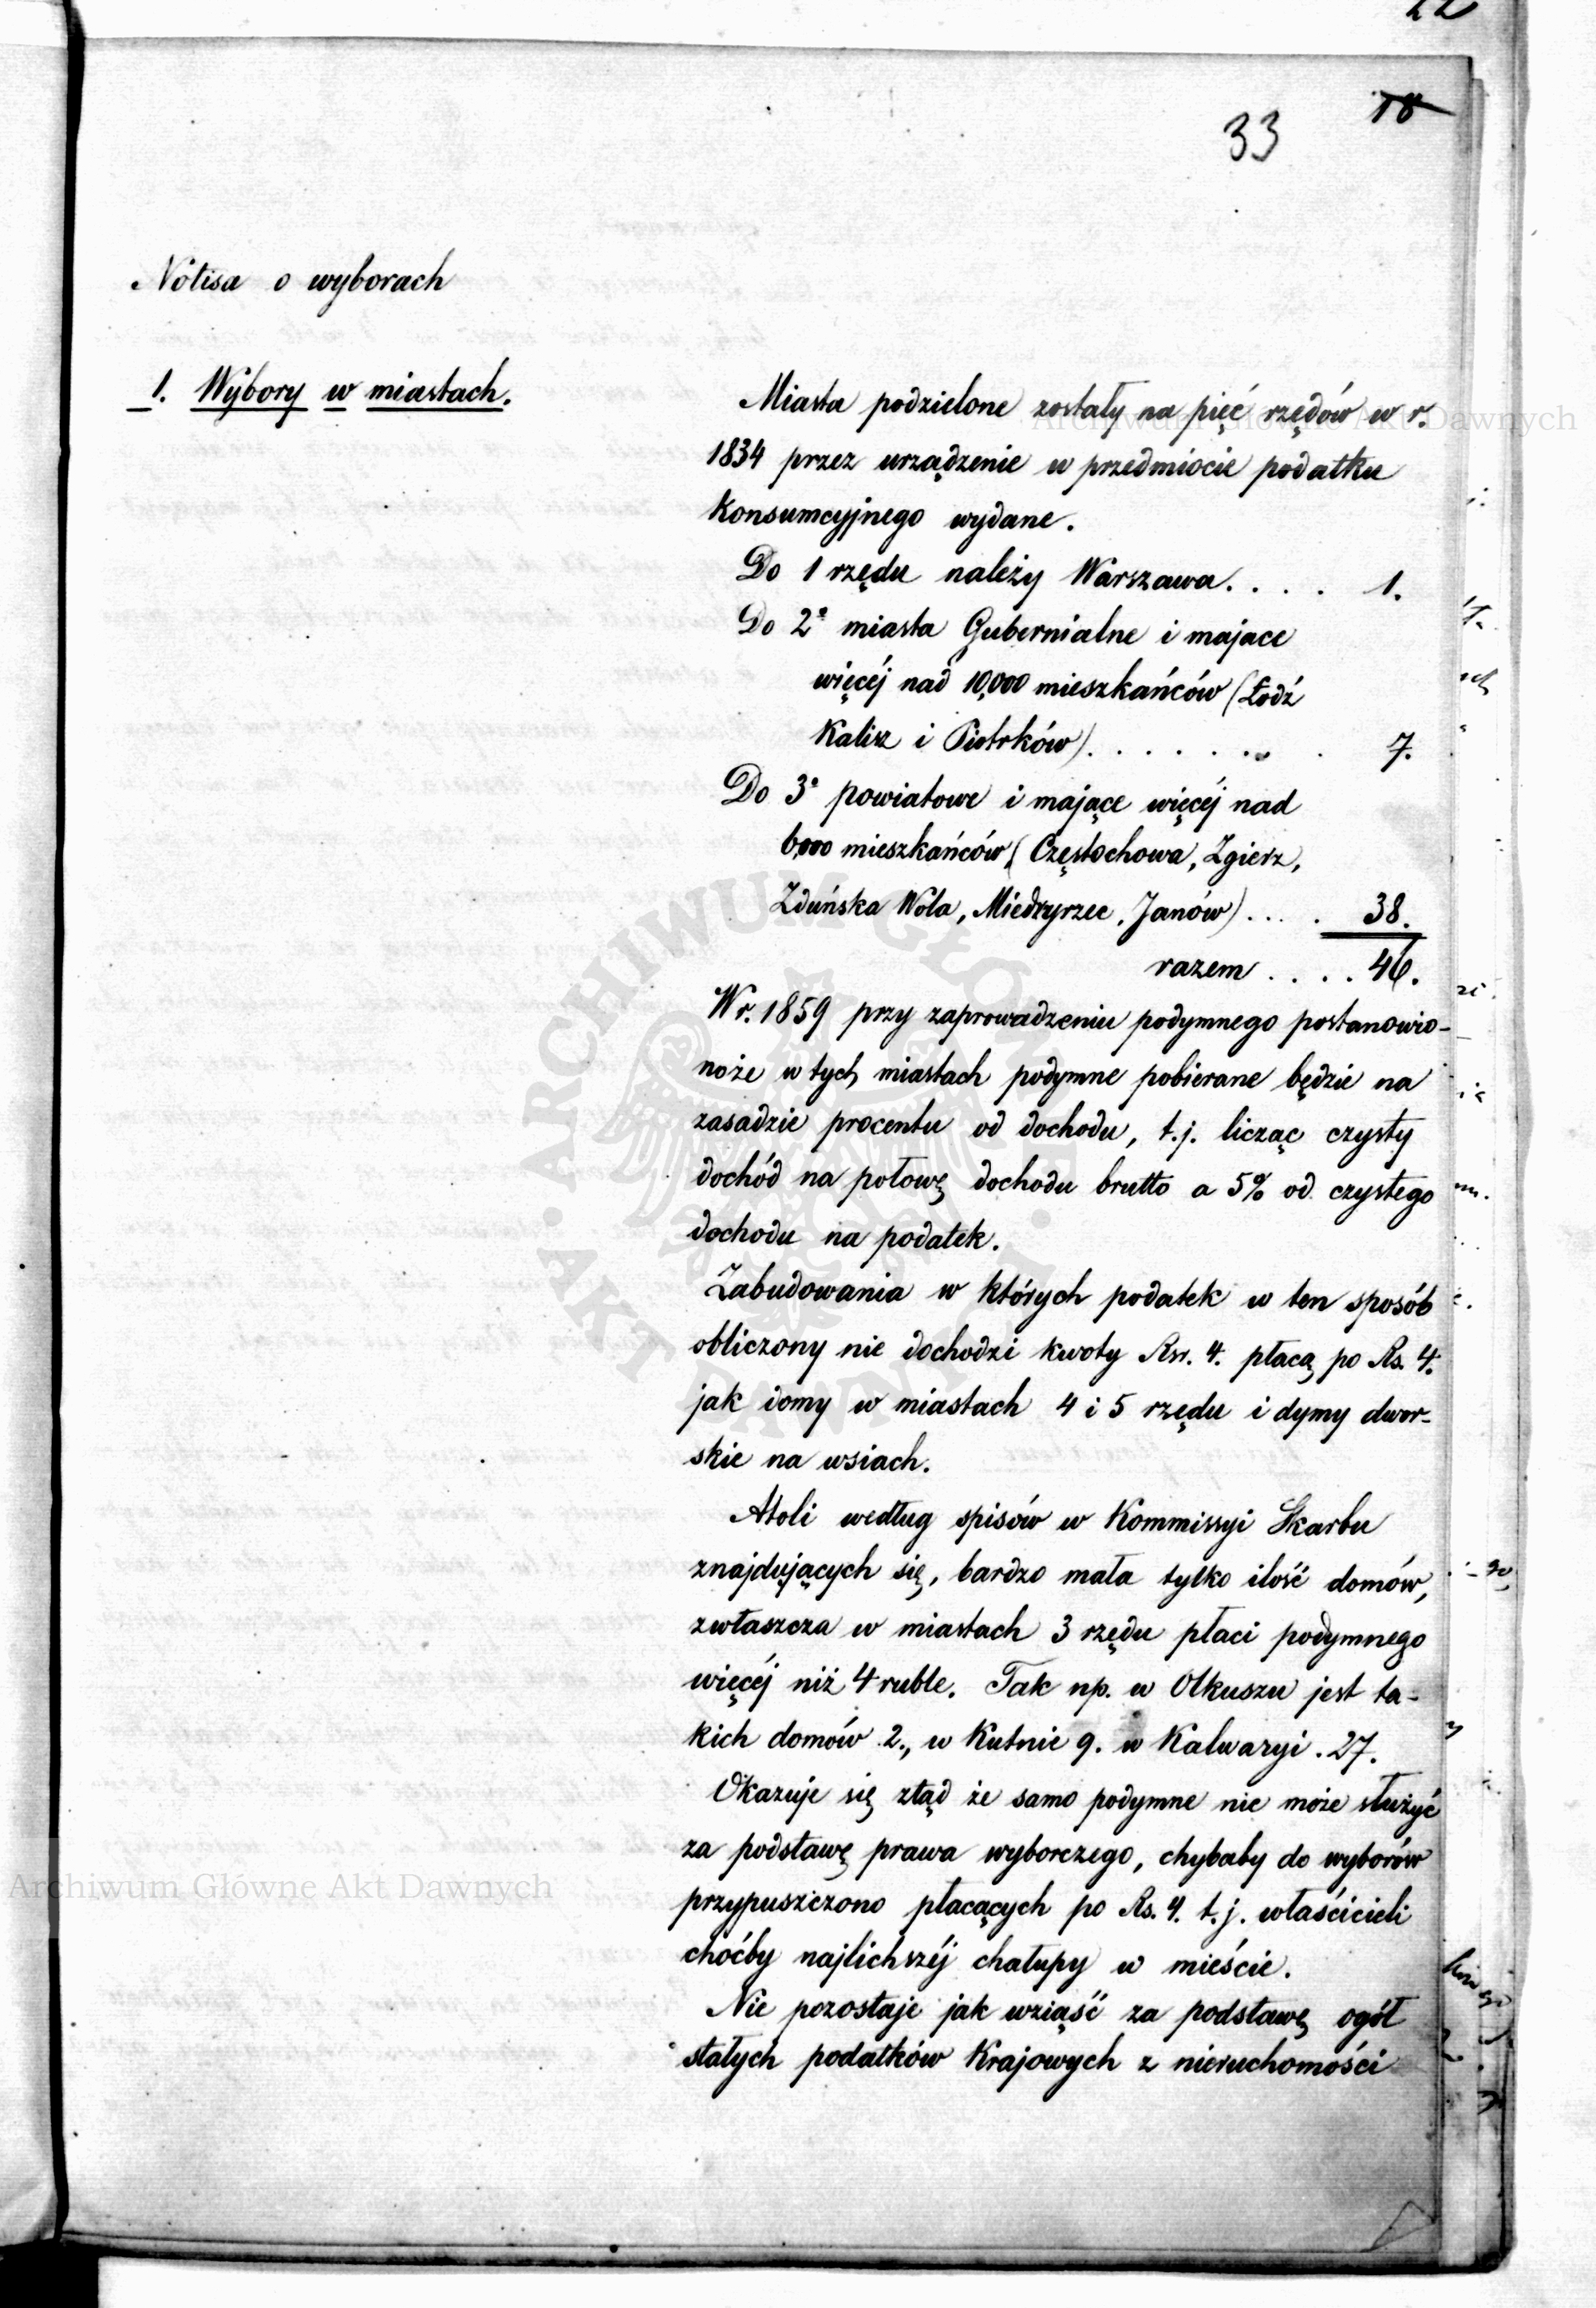 22
18
33
Notisa o wyborach
1. Wybory w miastach.
Miasta podzielone zostały na pięć rzędów w r.
1834 przez urządzenie w przedmiocie podatku
konsumcyjnego wydane.
Do 1 rzędu należy Warszawa. . . . 1.
Do 2º miasta Gubernialne i majace
więcéj nad 10,000 mieszkańców (Łodź
Kalisz i Piotrków) . . . . . . . 7.
Do 3º powiatowe i mające więcéj nad
6,000 mieszkańców (Częstochowa, Zgierz,
Zduńska Wola, Miedzyrzec, Janów) . . . . 38.
razem . . . . 46.
W r. 1859 przy zaprowadzeniu podymnego postanowio-
no że w tych miastach podymne pobierane będzie na
zasadzie procentu od dochodu, t.j. licząc czysty
dochód na połowę dochodu brutto a 5% od czystego
dochodu na podatek.
Zabudowania w których podatek w ten sposób
obliczony nie dochodzi kwoty Rsr. 4. płacą po Rs. 4.
jak domy w miastach 4 i 5 rzędu i dymy dwor-
skie na wsiach.
Atoli według spisów w Kommissyi Skarbu
znajdujących się, bardzo mała tylko ilość domów,
zwłaszcza w miastach 3 rzędu płaci podymnego
więcéj niż 4 ruble. Tak np. w Olkuszu jest ta-
kich domów 2., w Kutnie 9. w Kalwaryi . 27.
Okazuje się ztąd że samo podymne nie może służyć
za podstawę prawa wyborczego, chybaby do wyborów
przypuszczono płacących po Rs. 4. t.j. właścicieli
choćby najlichszéj chałupy w mieście.
Nie pozostaje jak wziąść za podstawę ogół
stałych podatków Krajowych z nieruchomości
Archiwum Główne Akt Dawnych
Archiwum Główne Akt Dawnych
ARCHIWUM GŁÓWNE · AKT DAWNYCH ·